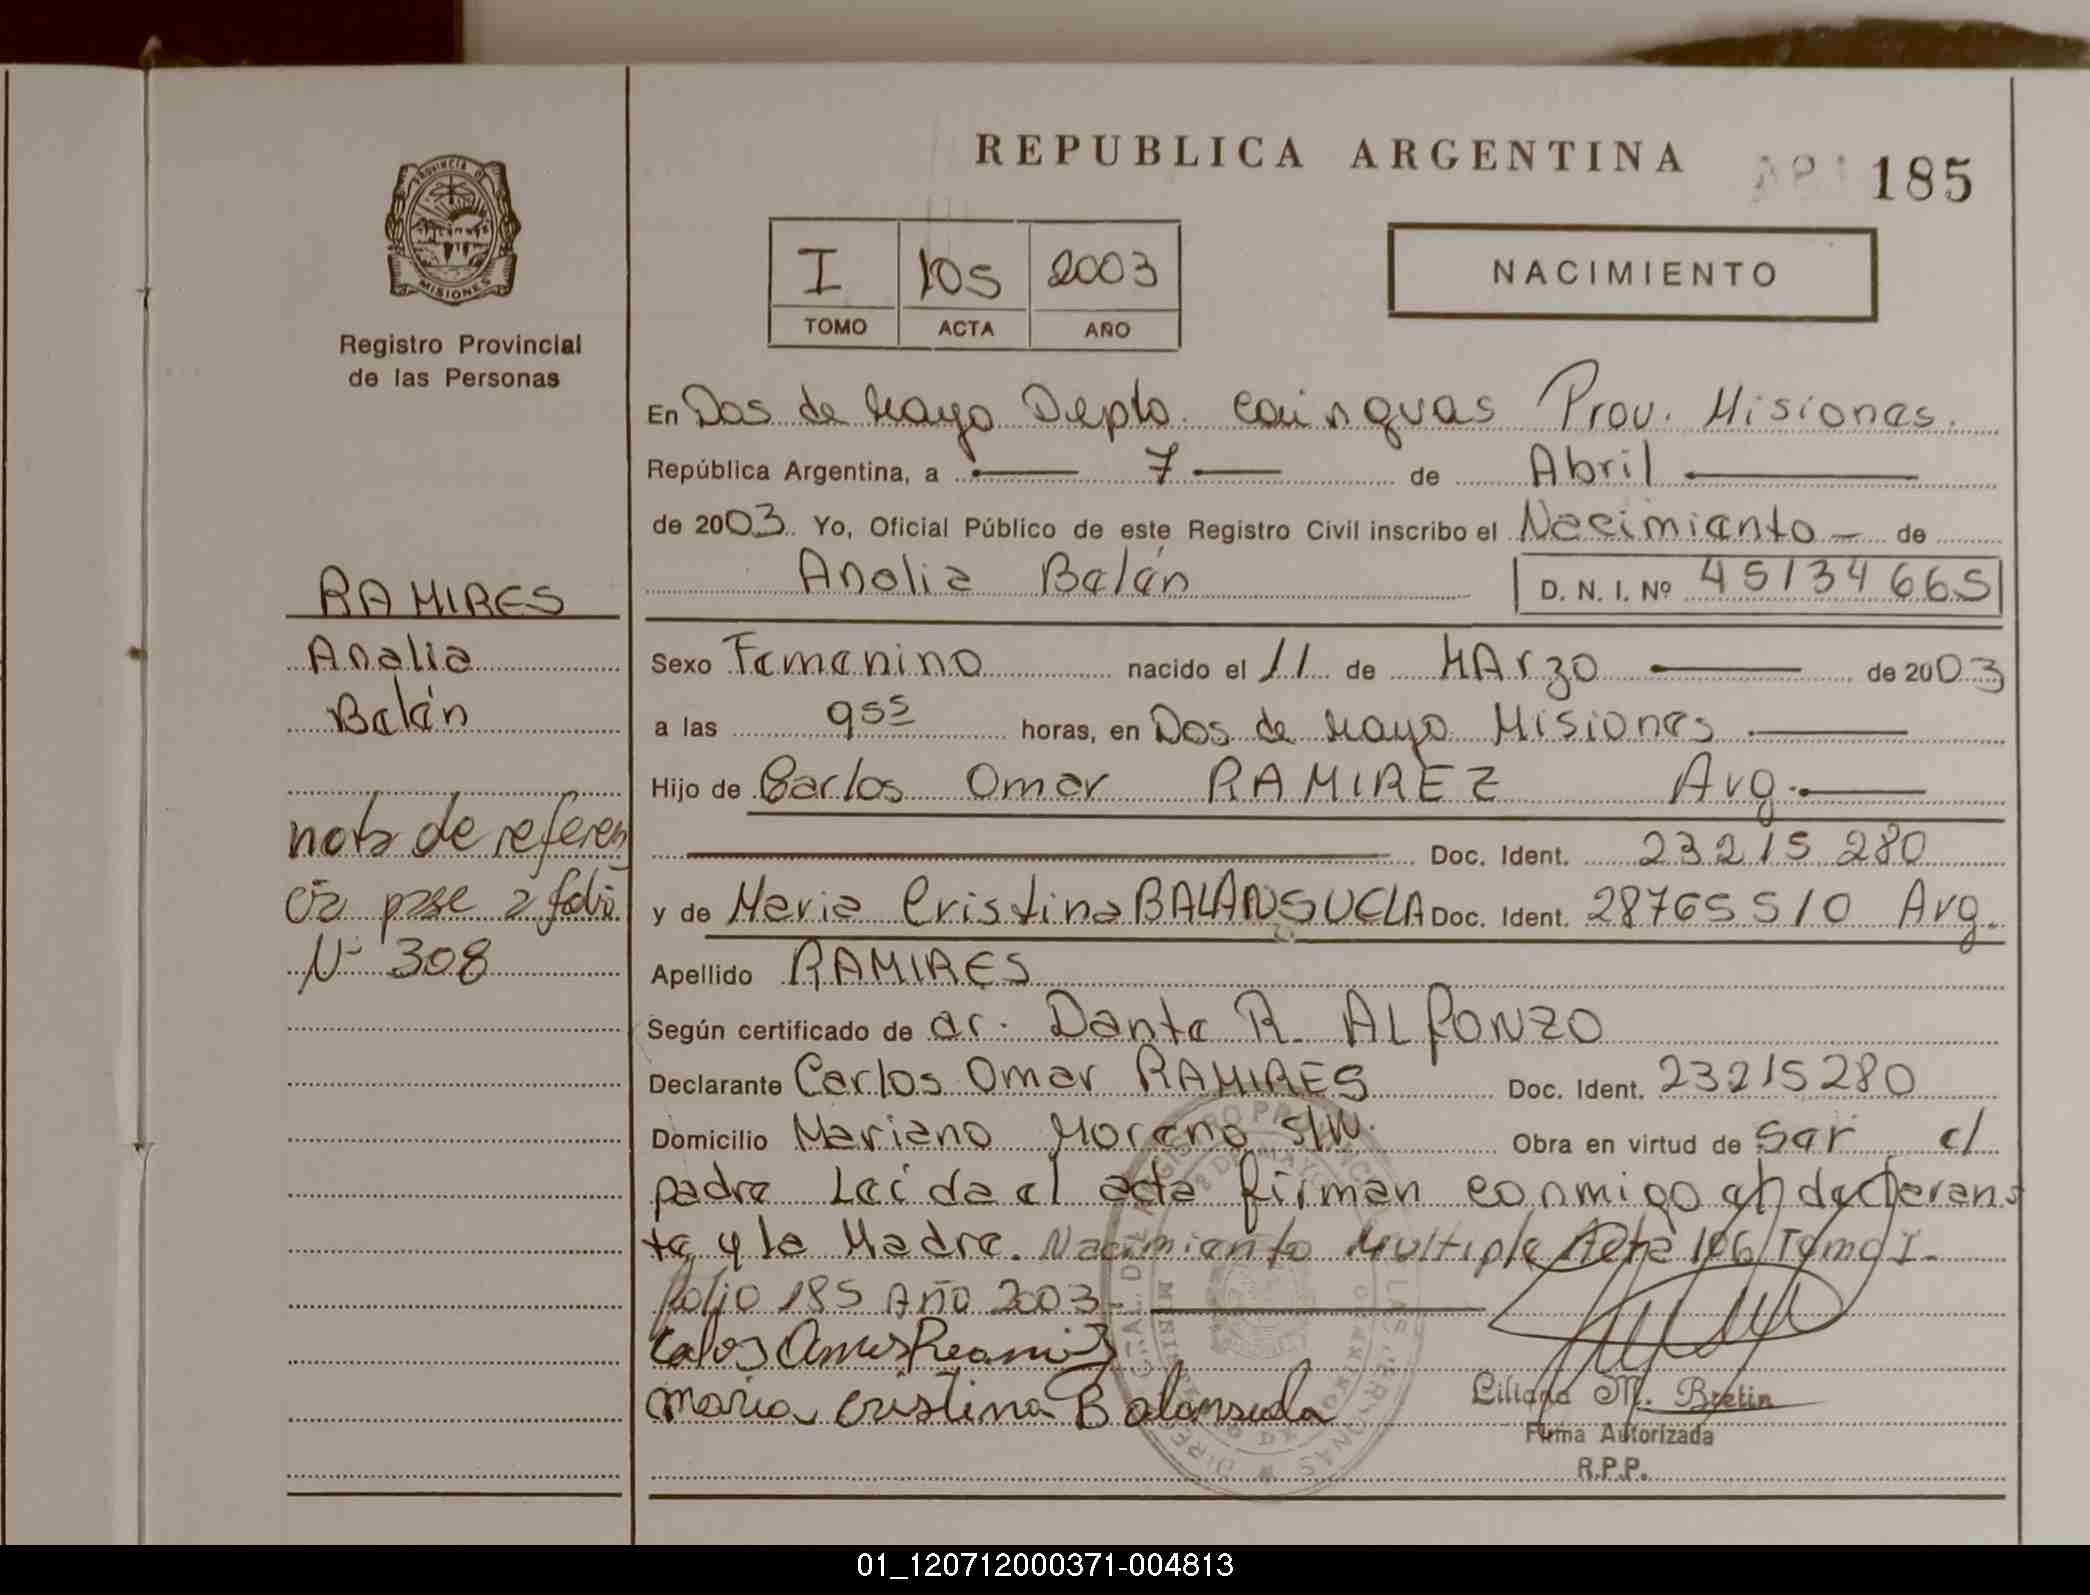 REPUBLICA ARGENTINA
185
PROVINCIA DE
MISIONES
Registro Provincial
de las Personas
I 105 2003
TOMO ACTA AÑO
NACIMIENTO
En Dos de Mayo Depto. Cainguas Prov. Misiones.
República Argentina, a 7 de Abril
de 2003. Yo, Oficial Público de este Registro Civil inscribo el Nacimiento de
Analia Belén D. N. I. Nº 45134665
RAMIRES
Analia
Belén
nota de referen
cia pase a folio
Nº 308
Sexo Femenino nacido el 11 de MArzo de 2003
a las 9 55 horas, en Dos de Mayo Misiones
Hijo de Carlos Omar RAMIREZ Arg.
Doc. Ident. 23215280
y de Maria Cristina BALANSUELA Doc. Ident. 28765510 Arg.
Apellido RAMIRES
Según certificado de dr. Dante R. ALFONZO
Declarante Carlos Omar RAMIRES Doc. Ident. 23215280
Domicilio Mariano Moreno S/N. Obra en virtud de ser el
padre Leida el acta firman conmigo el declaran
te y la Madre. Nacimiento Multiple Acta 106 Tomo I
folio 185 Año 2003-
Maria Cristina Balansuela
Liliana M. Bretin
Firma Autorizada
R.P.P.
01_120712000371-004813